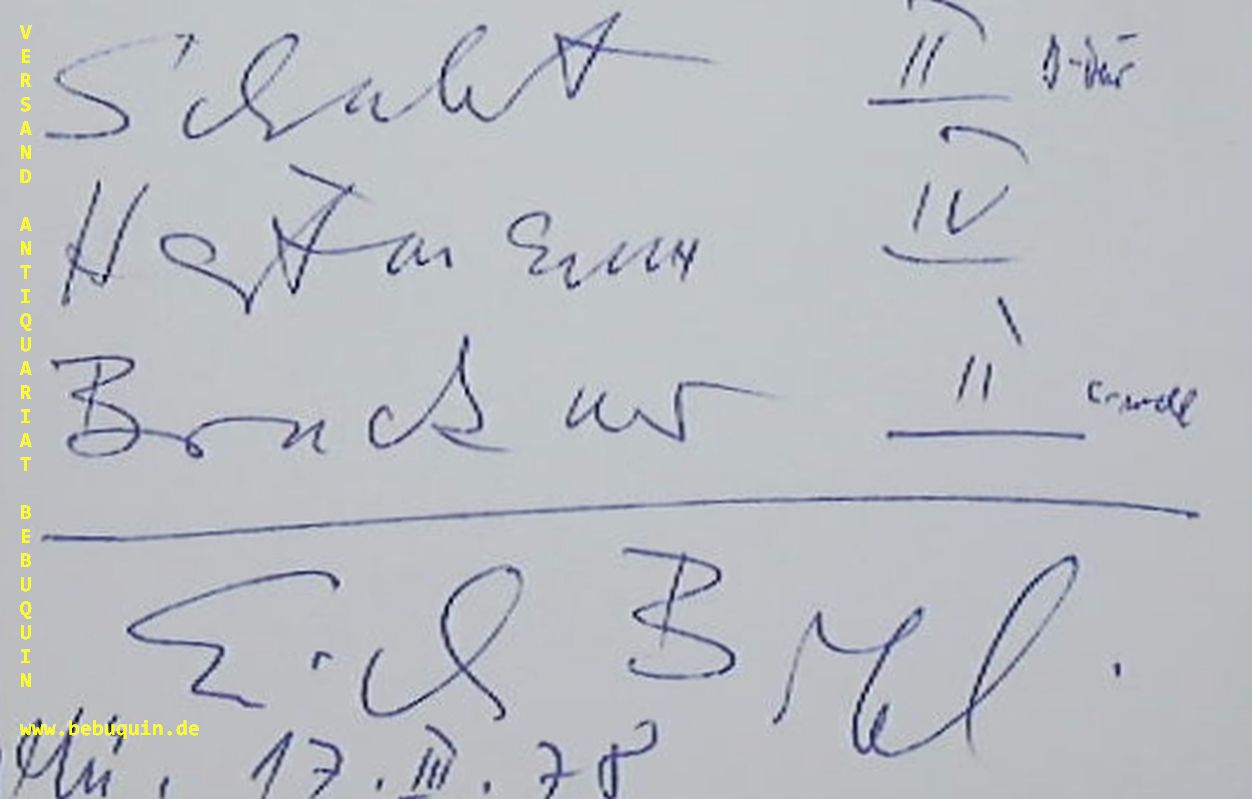 Schubert II D-Dur
Hartmann IV
Bruckner II c-moll
Erich B
Mü. 17. III. 78
VERSAND ANTIQUARIAT BEBUQUIN
www.bebuquin.de